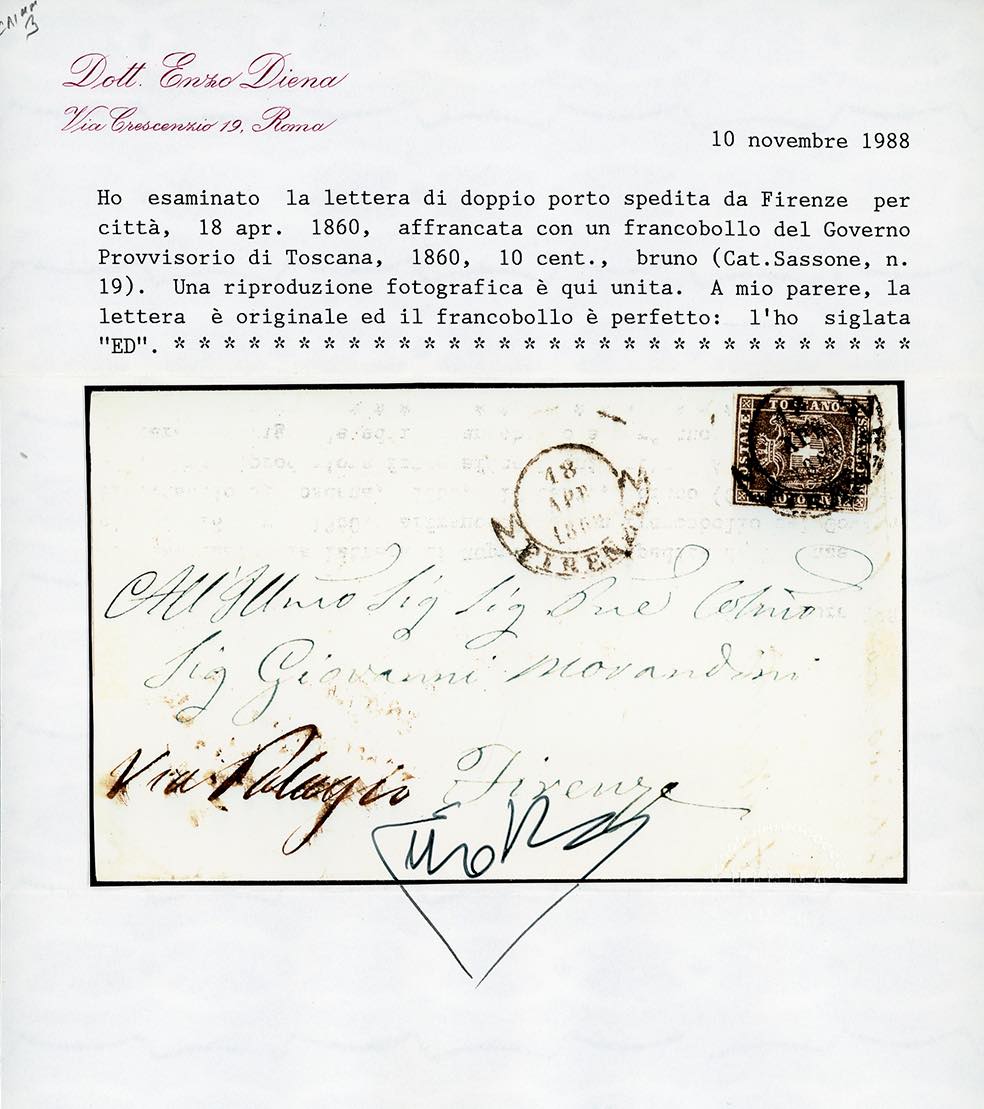 Dott. Enzo Diena
Via Crescenzio 19, Roma
10 novembre 1988
Ho esaminato la lettera di doppio porto spedita da Firenze per
città, 18 apr. 1860, affrancata con un francobollo del Governo
Provvisorio di Toscana, 1860, 10 cent., bruno (Cat.Sassone, n.
19). Una riproduzione fotografica è qui unita. A mio parere, la
lettera è originale ed il francobollo è perfetto: l'ho siglata
"ED". * * * * * * * * * * * * * * * * * * * * * * * * * * * * * *
18
APR
1860
FIRENZE
Sig Sig
Sig Giovanni Morandini
Via Palagio Firenze